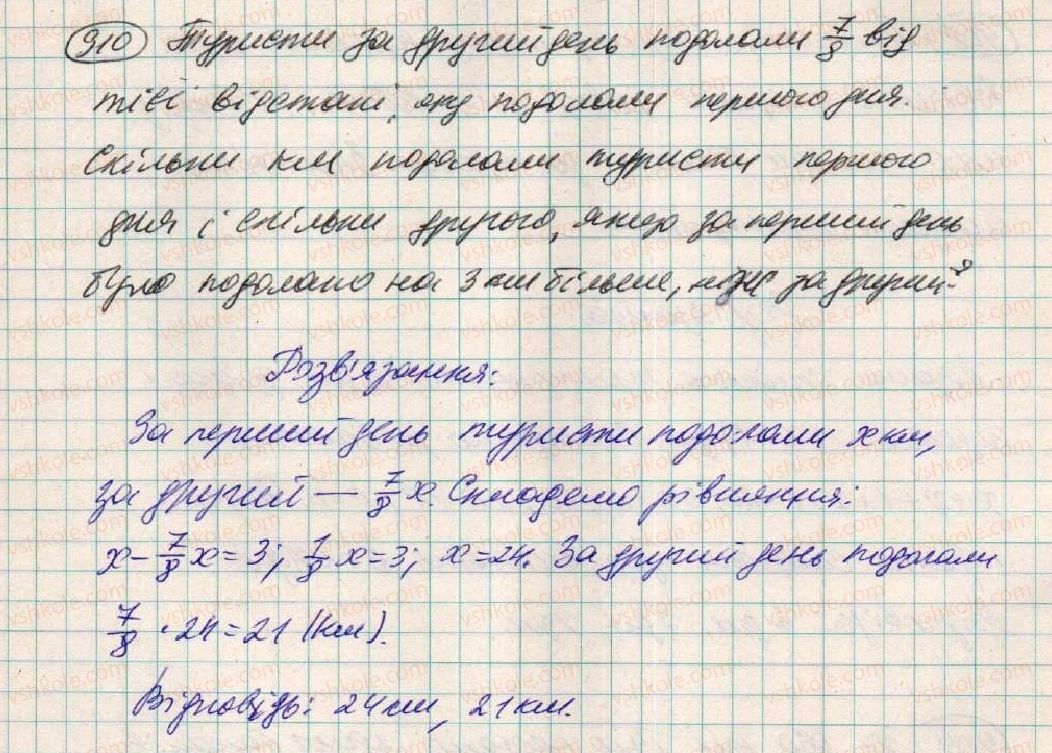 310 Туристи за другий день подолали 7/8 від
тієї відстані, яку подолали першого дня.
Скільки км подолали туристи першого
дня і скільки другого, якщо за перший день
було подолано на 3 км більше, ніж за другий?
Розв'язання:
За перший день туристи подолали x км,
за другий — 7/8 x. Складемо рівняння:
x - 7/8 x = 3; 1/8 x = 3; x = 24. За другий день подолали
7/8 · 24 = 21 (км).
Відповідь: 24 км, 21 км.